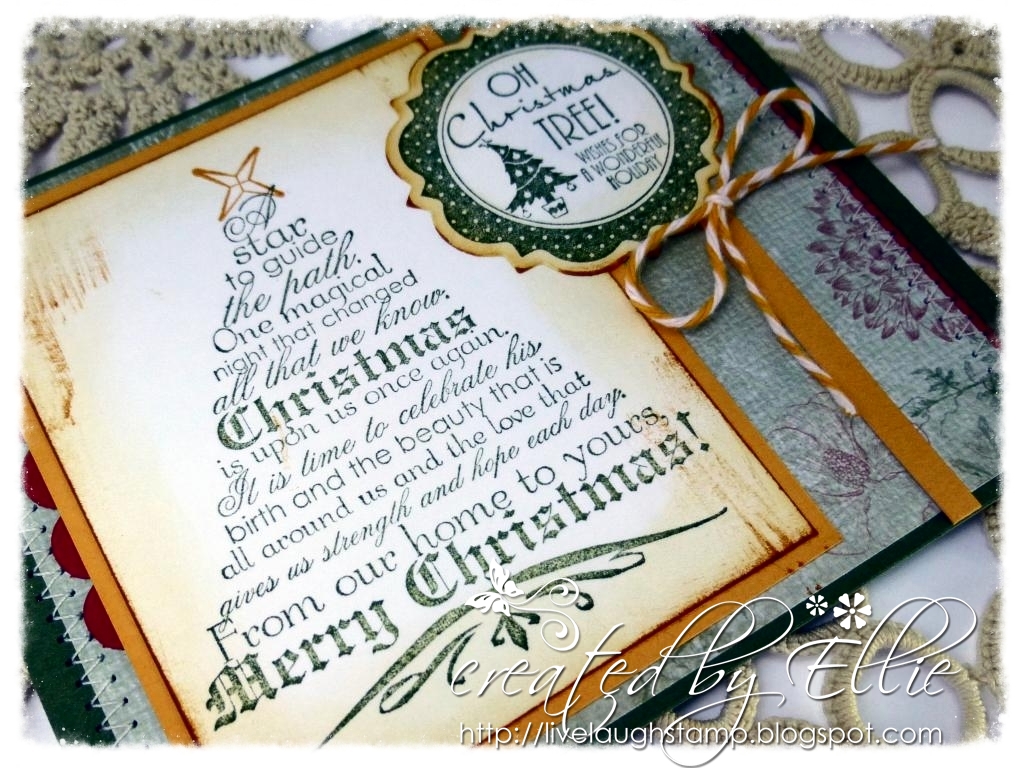 OH
Christmas
TREE!
WISHES FOR
A WONDERFUL
HOLIDAY
A
star
to guide
the path.
One magical
night that changed
all that we know.
Christmas
is upon us once again.
It is time to celebrate his
birth and the beauty that is
all around us and the love that
gives us strength and hope each day.
From our home to yours,
Merry Christmas!
created by Ellie
http://livelaughstamp.blogspot.com